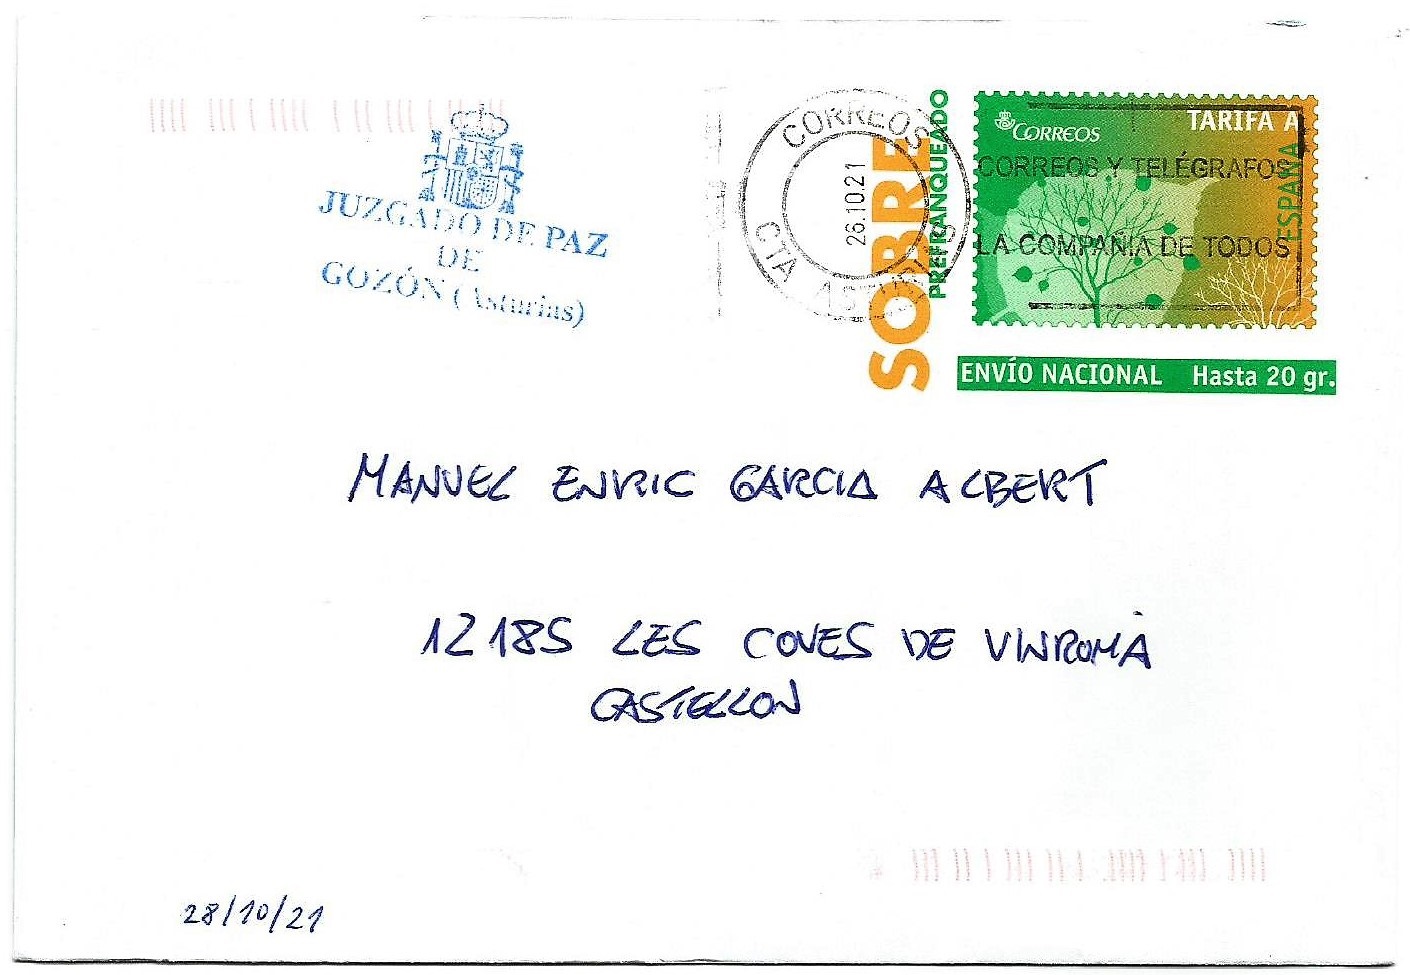 JUZGADO DE PAZ
DE
GOZÓN (Asturias)
CORREOS
26.10.21
CTA ASTURIAS
SOBRE
PREFRANQUEADO
CORREOS
TARIFA A
ESPAÑA
CORREOS Y TELÉGRAFOS
LA COMPAÑIA DE TODOS
ENVÍO NACIONAL Hasta 20 gr.
MANUEL ENRIC GARCIA ALBERT
12185 LES COVES DE VINROMÀ
CASTELLON
28/10/21